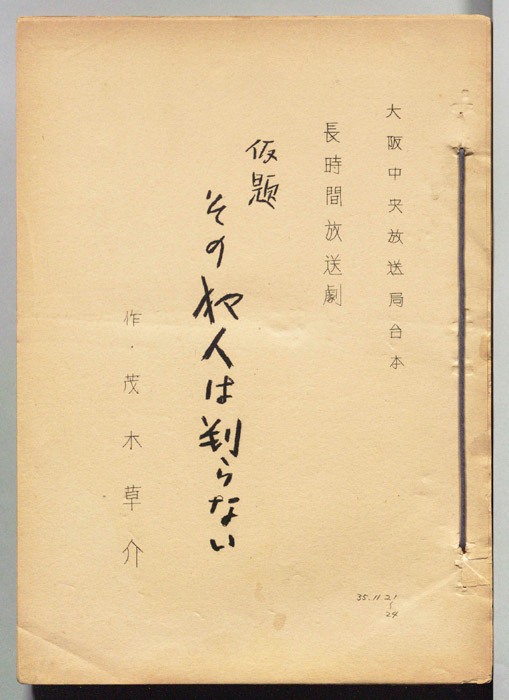 大阪中央放送局台本
長時間放送劇
仮題
その犯人は判らない
作・茂木草介
35.11.21
〜
24